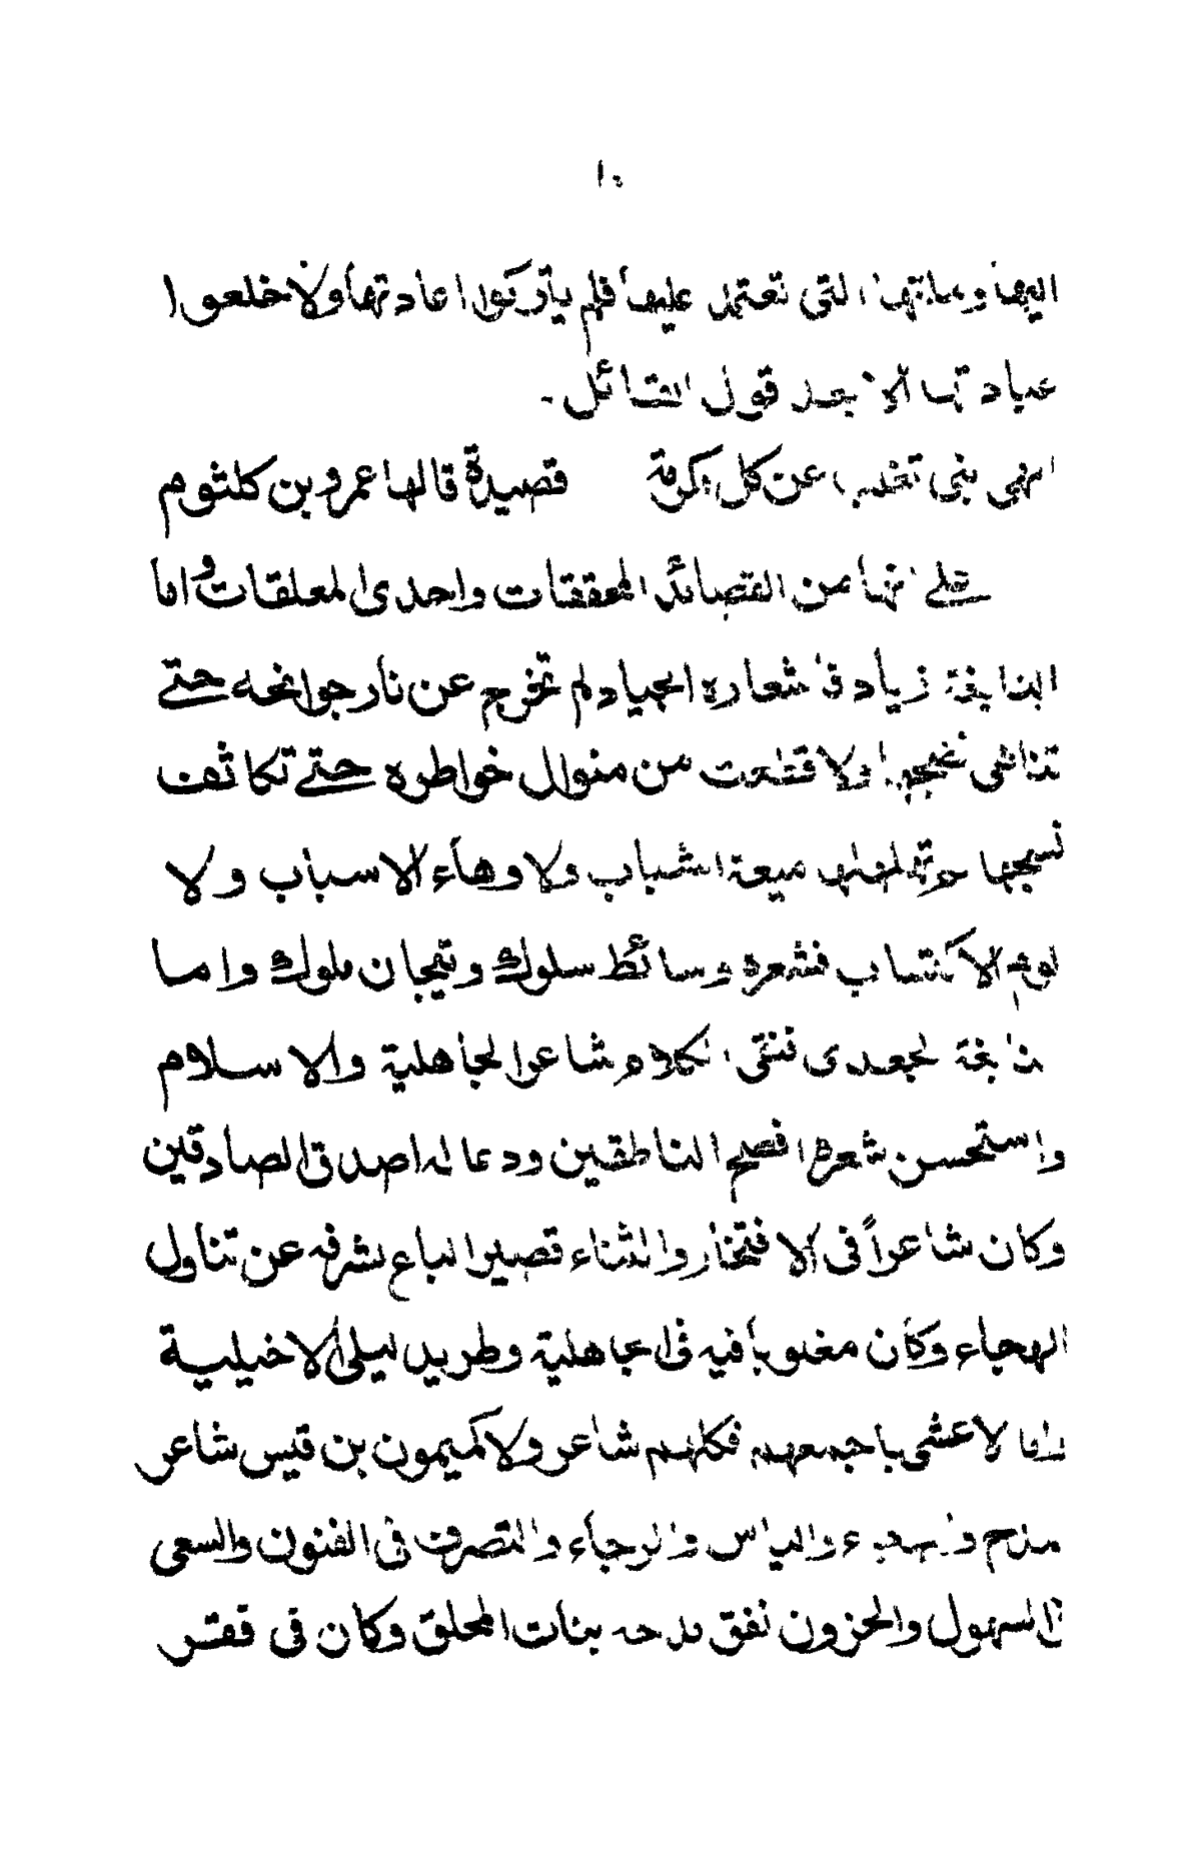 ١٠
اليها وملتها التى تعتمد عليها فلم يتركوا عادتها ولا خلعوا
عبادتها الا بعد قول القائل -
الهى بنى تغلب عن كل مكرمة قصيدة قالها عمرو بن كلثوم
على انها من القصائد المحققات واحدى المعلقات و اما
النابغة زياد فاشعاره الجياد لم تخرج عن نار جوانحه حتى
تناهى نضجها ولا قطعت من منوال خواطره حتى تكاثف
نسجها لم تهلهلها ميعة الشباب ولا وهاء الاسباب ولا
لوم الاكتساب فشعره وسائط سلوك وتيجان ملوك واما
نابغة الجعدى فنقى الكلام شاعر الجاهلية والاسلام
واستحسن شعره افصح الناطقين ودعا له اصدق الصادقين
وكان شاعراً فى الافتخار والثناء قصير الباع بشرفه عن تناول
الهجاء وكان مغلوبا فيه فى الجاهلية وطريد ليلى الاخيلية
واما لاعشى باجمعهم فكلهم شاعر ولا كميمون بن قيس شاعر
المدح والهجاء والياس والرجاء والتصرف فى الفنون والسعى
فى السهول والحزون نفق مدحه بنات المحلق وكان فى فقر